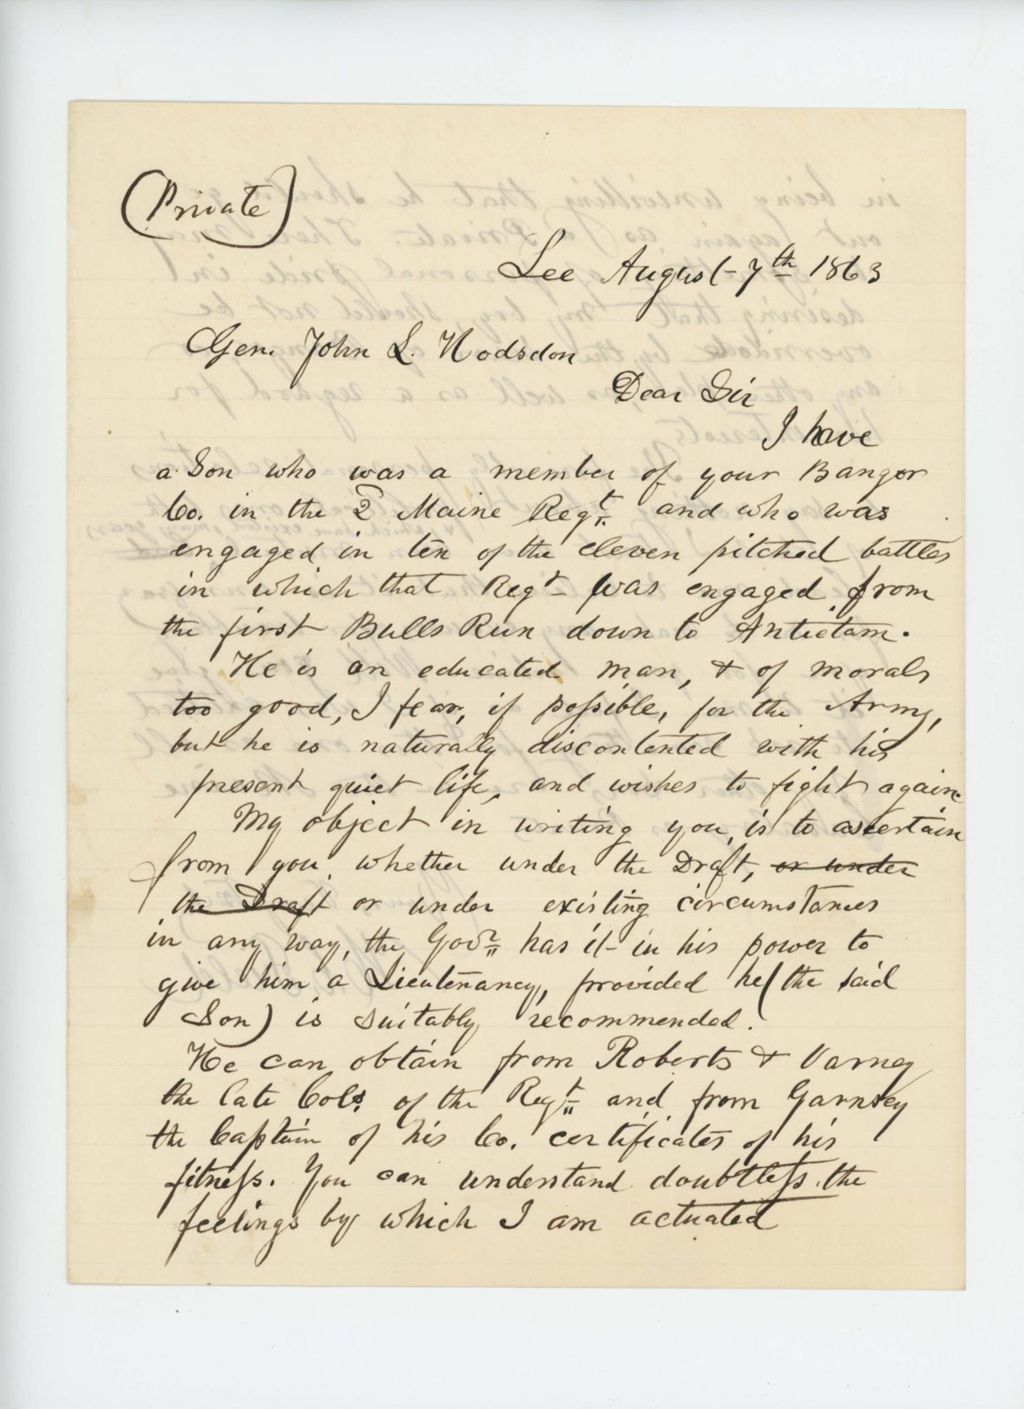 (Private)
Lee August 7th 1863
Gen. John L. Hodsdon
Dear Sir
I have
a Son who was a member of your Bangor
Co. in the 2d Maine Regt. and who was
engaged in ten of the eleven pitched battles
in which that Regt was engaged from
the first Bulls Run down to Antietam.
He is an educated man, & of morals
too good, I fear, if possible, for the Army,
but he is naturally discontented with his
present quiet life, and wishes to fight again.
My object in writing you, is to ascertain
from you, whether under the Draft, or under
the Draft or under existing circumstances
in any way, the Govr. has it in his power to
give him a Lieutenancy, provided he (the said
Son) is suitably recommended.
He can obtain from Roberts & Varney
the late Cols. of the Regt. and from Garnsey
the Captain of his Co. certificates of his
fitness. You can understand doubtless the
feelings by which I am actuated